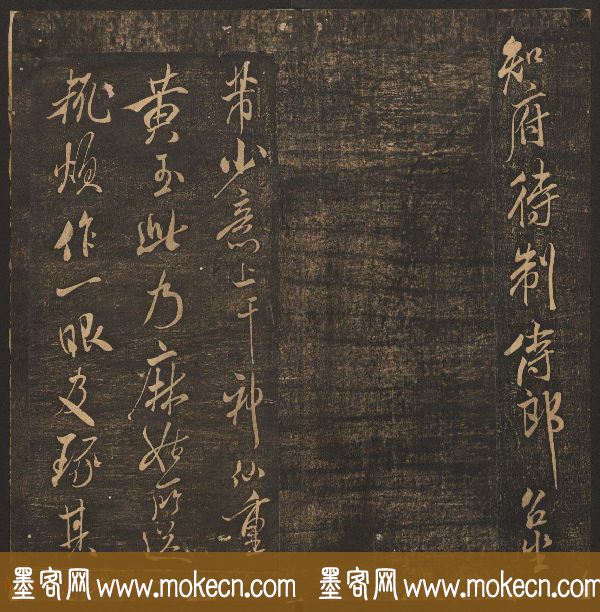 知府待制侍郎台坐
芾少意上干神仙重
黄玉此乃麻姑所送
桃煩作一眼及琢其
墨客网 www.mokecn.com 墨客网 www.mokecn.com